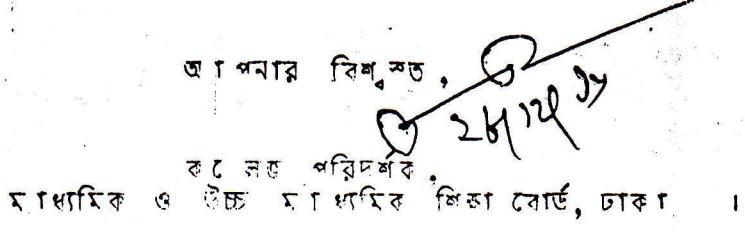 আপনার বিশ্বস্ত,
কলেজ পরিদর্শক,
মাধ্যমিক ও উচ্চ মাধ্যমিক শিক্ষা বোর্ড, ঢাকা ।